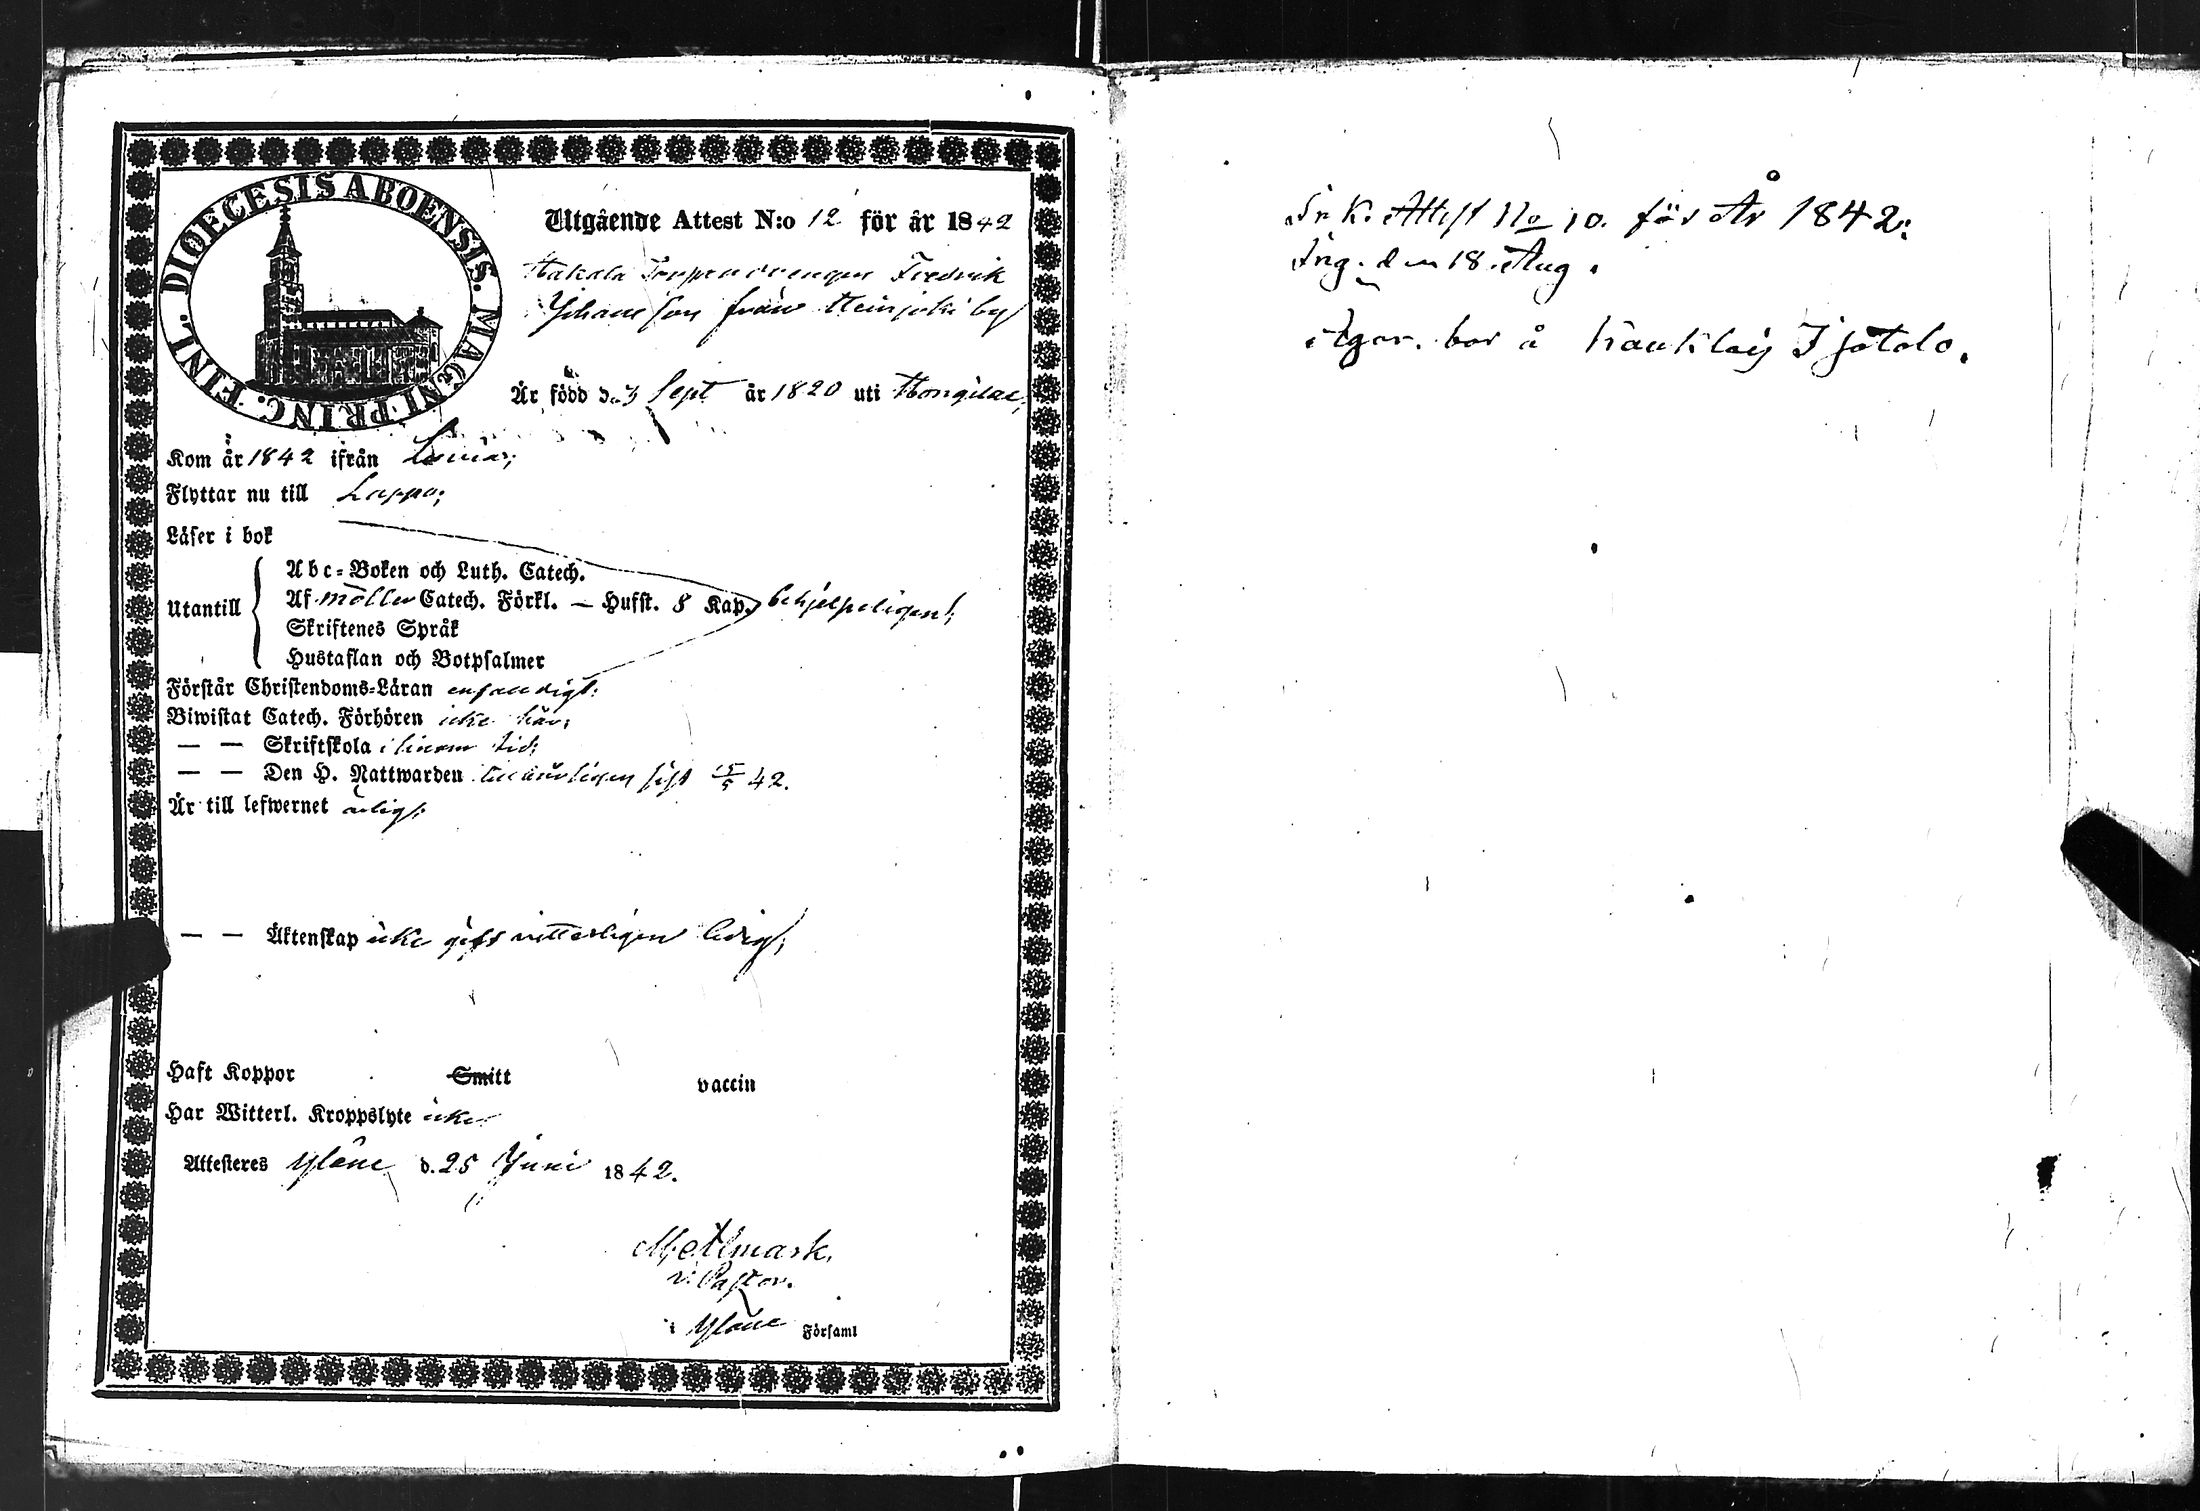 DIOECESIS ABOENSIS. MAGNI PRINC. FINL.
Utgående Attest N:o 12 för år 1842
Hakala Fredrik
Johansson från Heinjoki by
Är född d. 3 Sept år 1820 uti Hongilax,
Kom år 1842 ifrån
Flyttar nu till Lappo;
Läser i bok
Utantill
Abc-Boken och Luth. Catech.
Af möller Catech. Förkl. — Hufst. 8 Kap. behjelpeligen;
Skriftenes Språk
Hustaflan och Botpsalmer
Förstår Christendoms-Läran enfaldigt;
Biwistat Catech. Förhören icke här;
— — Skriftskola i sinom tid;
— — Den H. Nattwarden sist 42.
Är till lefwernet ärlig;
— — Äktenskap icke gift witterligen ledig;
Haft Koppor Smitt vaccin
Har Witterl. Kroppslyte icke
Attesteres Yläne d. 25 Juni 1842.
M. Almark.
v: Pastor.
i Yläne Församl
In k. Attest No 10. för År 1842:
Ing. den 18. Aug.
Ägar. bor å